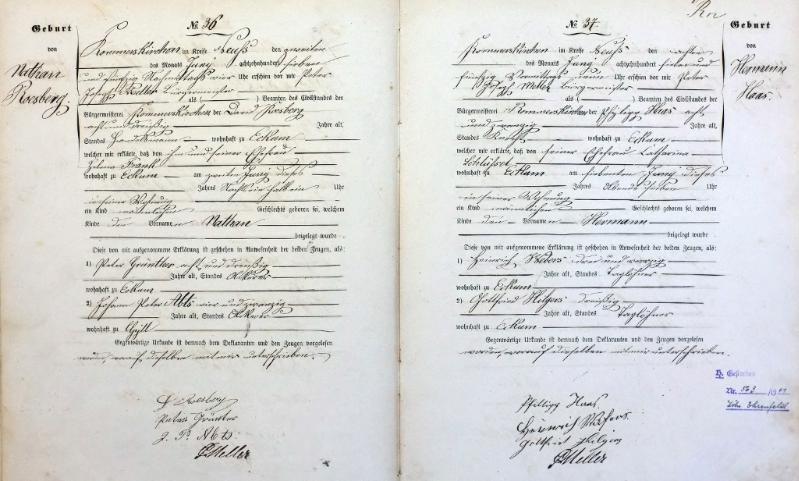 № 36
Geburt
von
Nathan
Roesberg.
Rommerskirchen im Kreise Neuß den zweiten
des Monats Juny achtzehnhundert sieben
und fünfzig Nachmittags vier Uhr erschien vor mir Peter
Joseph Meller Bürgermeister
als Beamten des Civilstandes der
Bürgermeisterei Rommerskirchen der David Roesberg
acht und dreißig Jahre alt,
Standes Handelsmann wohnhaft zu Eckum
welcher mir erklärte, daß von ihm und seiner Ehefrau
Helena Frank
wohnhaft zu Eckum am zweiten Juny dieses
Jahres Uhr
in seiner Wohnung
ein Kind männlichen Geschlechts geboren sei, welchem
Kinde der Vorname Nathan
beigelegt wurde.
Diese von mir aufgenommene Erklärung ist geschehen in Anwesenheit der beiden Zeugen, als:
1) Peter Grünther acht und dreißig
Jahre alt, Standes Ackerer
wohnhaft zu Eckum
2) Johann Peter Alts vier und zwanzig
Jahre alt, Standes Ackerer
wohnhaft zu Gill
Gegenwärtige Urkunde ist hernach dem Deklaranten und den Zeugen vorgelesen
worden, worauf dieselben mit mir unterschrieben.
D Roesberg
Peter Grünter
J. P. Alts
P Meller
№ 37
Geburt
von
Hermann
Haas.
Rommerskirchen im Kreise Neuß den achten
des Monats Juny achtzehnhundert sieben und
fünfzig Vormittags neun Uhr erschien vor mir Peter
Joseph Meller Bürgermeister
als Beamten des Civilstandes der
Bürgermeisterei Rommerskirchen der Philipp Haas acht
und zwanzig Jahre alt,
Standes wohnhaft zu Eckum
welcher mir erklärte, daß von seiner Ehefrau Catharina
Schlüssel
wohnhaft zu Eckum am siebenten Juny dieses
Jahres Abends sieben Uhr
in seiner Wohnung
ein Kind männlichen Geschlechts geboren sei, welchem
Kinde der Vorname Hermann
beigelegt wurde.
Diese von mir aufgenommene Erklärung ist geschehen in Anwesenheit der beiden Zeugen, als:
1) Heinrich Webers drei und vierzig
Jahre alt, Standes Taglöhner
wohnhaft zu Eckum
2) Gottfried Hilgers dreißig
Jahre alt, Standes Taglöhner
wohnhaft zu Eckum
Gegenwärtige Urkunde ist hernach dem Deklaranten und den Zeugen vorgelesen
worden, worauf dieselben mit mir unterschrieben.
Philipp Haas
Heinrich Wefers
Gottfried Hilgers
P Meller
Gestorben
Nr.
Köln Ehrenfeld